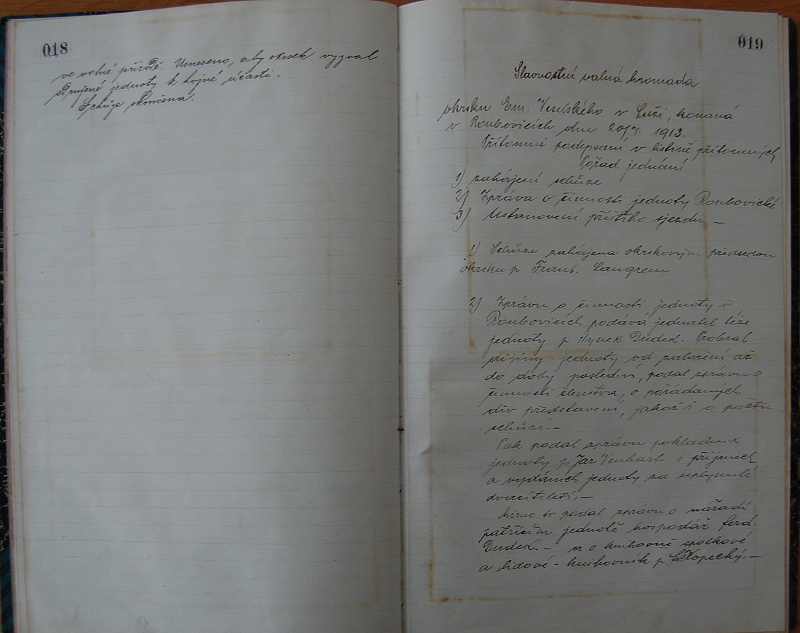 018
ve volné přírodě. Usneseno, aby okrsek vyzval
spojené jednoty k hojné účasti.
Schůze skončena.
019
Slavnostní valná hromada
okrsku Em. Venhského v Luži, konaná
v Roubovicích dne 20/7. 1913.
Přítomni podepsaní v listině přítomných
Pořad jednání
1) zahájení schůze
2) Zpráva o činnosti jednoty Roubovické
3) Ustanovení příštího sjezdu. —
1) Schůze zahájena okrskovým předsedou
okrsku p. Frant. Langrem
2) Zprávu o činnosti jednoty v
Roubovicích podává jednatel téže
jednoty p. Hynek Dudek. Probral
dějiny jednoty od založení až
do doby poslední, podal zprávu o
činnosti členstva, o pořádaných
div. představení, jakož i o počtu
schůzí. —
Pak podal zprávu pokladník
jednoty p. Jar. Venhart o příjmech
a vydáních jednoty za uplynulé
dvacítiletí. —
Mimo to podal zprávu o nářadí
patřícím jednotě hospodář Ferd.
Dudek. — o knihovně spolkové
a lidové - knihovník p. Klopecký. —